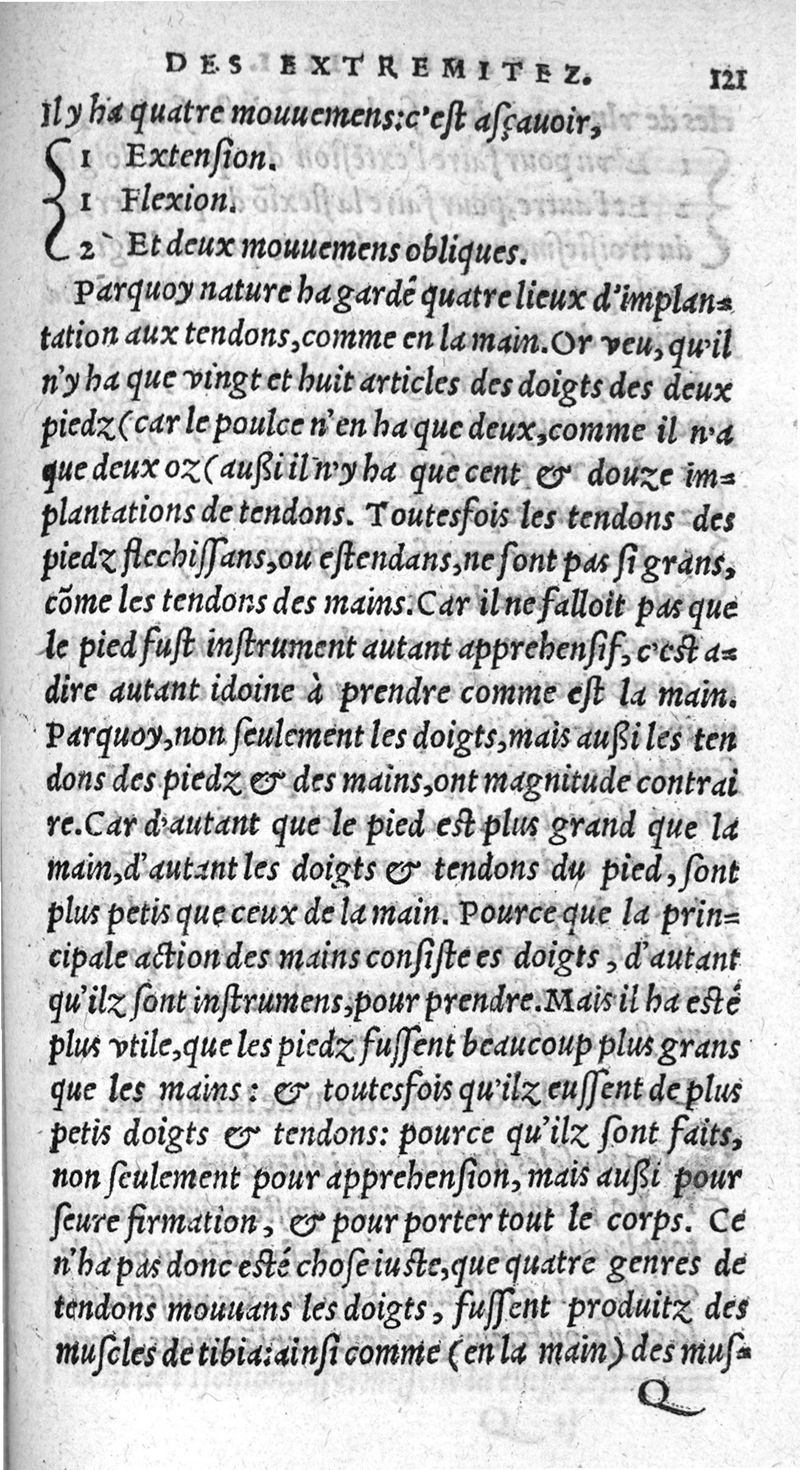 DES EXTREMITEZ. 121
Il y ha quatre mouuemens:c'est asçauoir,
1 Extension.
1 Flexion.
2 Et deux mouuemens obliques.
Parquoy nature ha gardé quatre lieux d'implan=
tation aux tendons,comme en la main.Or veu, qu'il
n'y ha que vingt et huit articles des doigts des deux
piedz(car le poulce n'en ha que deux,comme il n'a
que deux oz(außi il n'y ha que cent & douze im=
plantations de tendons. Toutesfois les tendons des
piedz flechissans,ou estendans,ne sont pas si grans,
cõme les tendons des mains.Car il ne falloit pas que
le pied fust instrument autant apprehensif, c'est a=
dire autant idoine à prendre comme est la main.
Parquoy,non seulement les doigts,mais außi les ten
dons des piedz & des mains,ont magnitude contrai
re.Car d'autant que le pied est plus grand que la
main,d'autant les doigts & tendons du pied, sont
plus petis que ceux de la main. Pource que la prin=
cipale action des mains consiste es doigts , d'autant
qu'ilz sont instrumens,pour prendre.Mais il ha esté
plus vtile,que les piedz fussent beaucoup plus grans
que les mains : & toutesfois qu'ilz eussent de plus
petis doigts & tendons: pource qu'ilz sont faits,
non seulement pour apprehension, mais außi pour
seure firmation , & pour porter tout le corps. Ce
n'ha pas donc esté chose iuste,que quatre genres de
tendons mouuans les doigts , fussent produitz des
muscles de tibia:ainsi comme (en la main) des mus=
Q